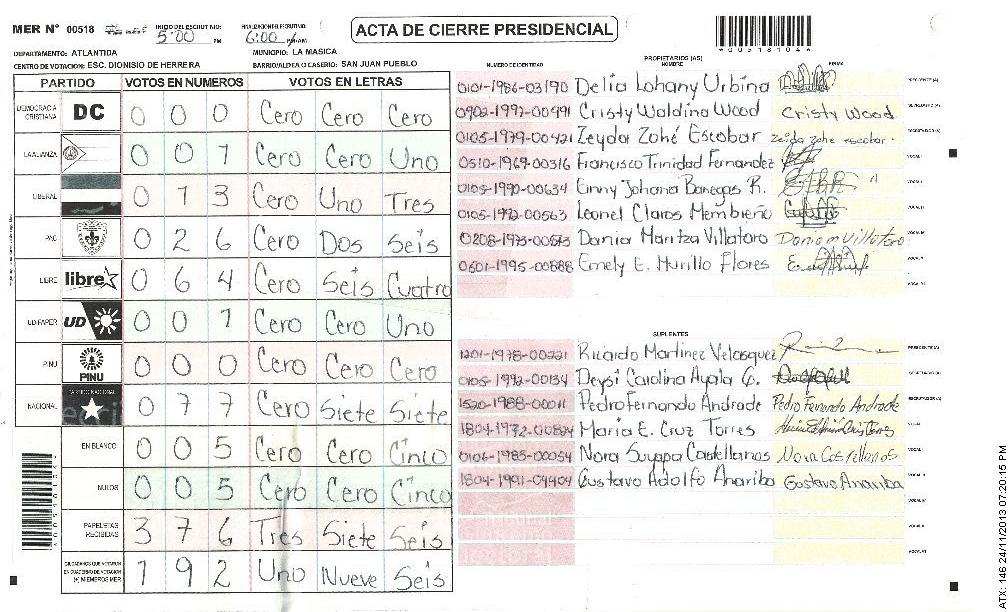 MER Nº 00518 INICIO DEL ESCRUTINIO: 5:00 PM FINALIZACION DEL ESCRUTINIO: 6:00 PM/AM
ACTA DE CIERRE PRESIDENCIAL
*00518104*
DEPARTAMENTO: ATLANTIDA MUNICIPIO: LA MASICA
CENTRO DE VOTACION: ESC. DIONISIO DE HERRERA BARRIO/ALDEA O CASERIO: SAN JUAN PUEBLO
PARTIDO VOTOS EN NUMEROS VOTOS EN LETRAS
DEMOCRACIA CRISTIANA DC 0 0 0 Cero Cero Cero
LA ALIANZA 0 0 1 Cero Cero Uno
LIBERAL 0 1 3 Cero Uno Tres
PAC 0 2 6 Cero Dos Seis
LIBRE libre 0 6 4 Cero Seis Cuatro
UD-FAPER UD 0 0 1 Cero Cero Uno
PINU PINU 0 0 0 Cero Cero Cero
NACIONAL PARTIDO NACIONAL 0 7 7 Cero Siete Siete
EN BLANCO 0 0 5 Cero Cero Cinco
NULOS 0 0 5 Cero Cero Cinco
PAPELETAS RECIBIDAS 3 7 6 Tres Siete Seis
CIUDADANOS QUE VOTARON EN CUADERNO DE VOTACION (+) MIEMBROS MER 1 9 2 Uno Nueve Seis
PROPIETARIOS (AS)
NUMERO DE IDENTIDAD NOMBRE FIRMA
0101-1986-03190 Delia Lohany Urbina PRESIDENTE (A)
0902-1992-00991 Cristy Waldina Wood Cristy Wood SECRETARIO (A)
0105-1979-00421 Zeyda Zohé Escobar Zeida Zohe escobar. ESCRUTADOR (A)
0510-1969-00316 Francisco Trinidad Fernandez VOCAL I
0105-1990-00634 Enny Johana Banegas R. VOCAL II
0105-1992-00563 Leonel Claros Membreño VOCAL III
0208-1975-00573 Dania Maritza Villatoro Dania m Villatoro VOCAL IV
0501-1995-00888 Emely E. Murillo Flores VOCAL V
VOCAL VI
SUPLENTES
1201-1978-00221 Ricardo Martinez Velasquez PRESIDENTE (A)
0105-1992-00134 Deysi Carolina Ayala G. SECRETARIO (A)
1520-1988-00011 Pedro Fernando Andrade Pedro Fernando Andrade ESCRUTADOR (A)
1804-1972-00884 Maria E. Cruz Torres VOCAL I
0106-1985-00054 Nora Suyapa Castellanos Nora Castellanos VOCAL II
1804-1991-04404 Gustavo Adolfo Anariba Gustavo Anariba VOCAL III
VOCAL IV
VOCAL V
VOCAL VI
ATX: 146 24/11/2013 07:20:15 PM